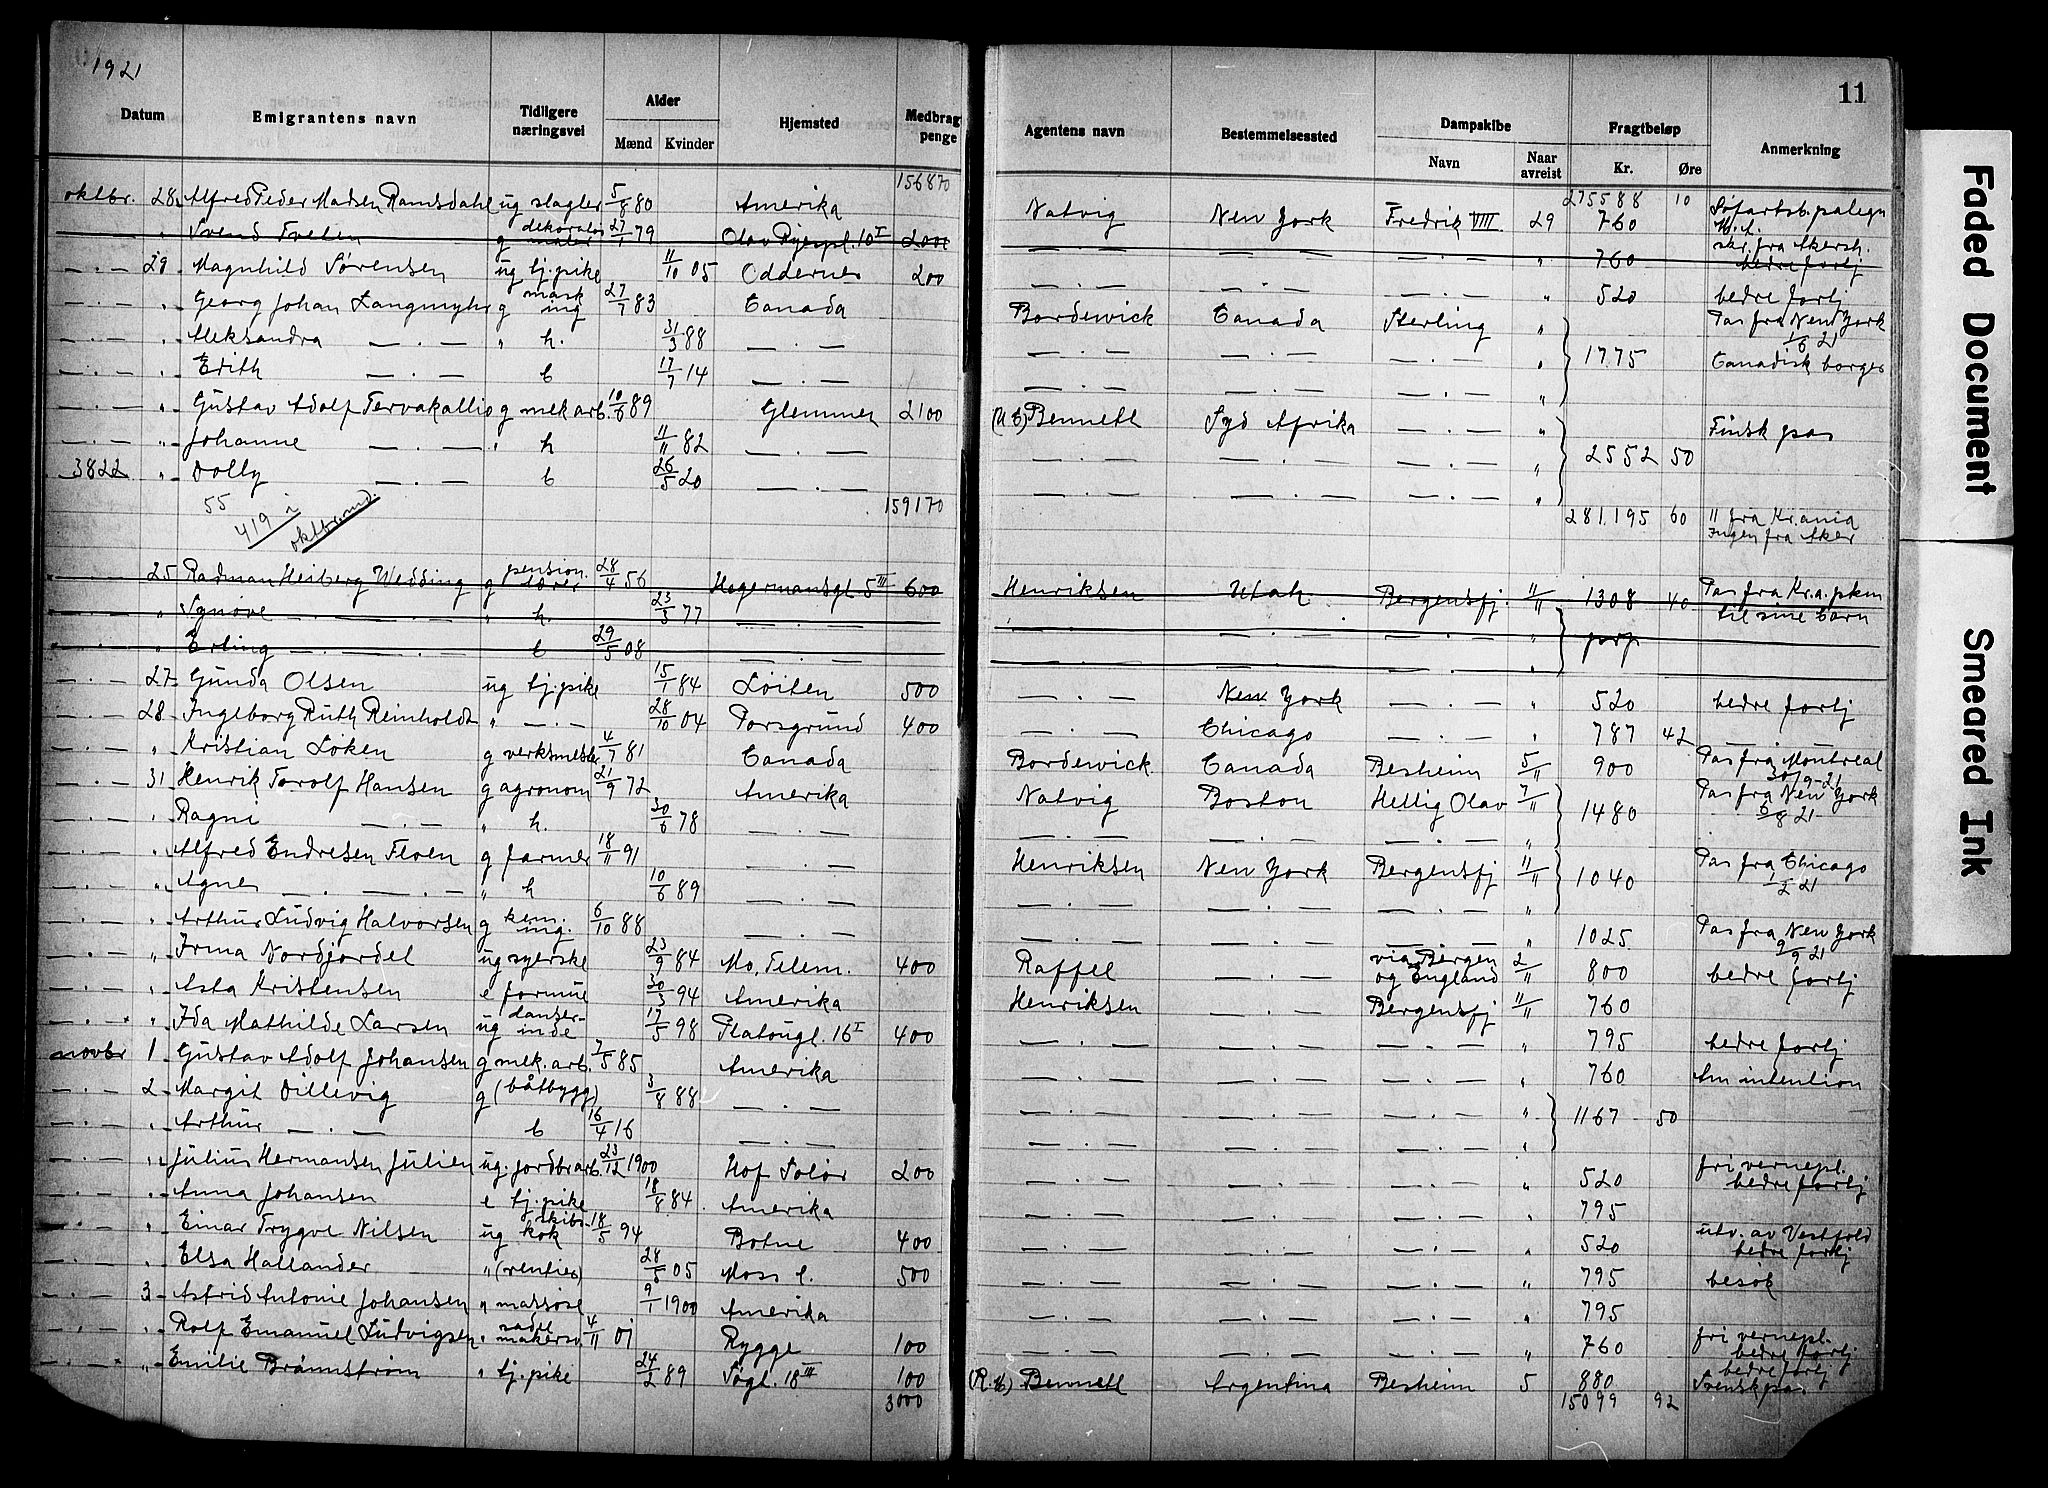 1921
11
Datum Emigrantens navn Tidligere næringsvei Alder Mænd Kvinder Hjemsted Medbragt penge Agentens navn Bestemmelsessted Dampskibe Navn Naar avreist Fragtbeløp Kr. Øre Anmerkning
156870 275588 10
oktbr. 28 Alfred Peder Madsen Ramsdahl ug slagter 5/8 80 Amerika Natvig New York Fredrik VIII 29 760 Søfartsb. palegn
" Svend Tveten g dekorations maler 27/1 79 Olav Ryespl. 10 I 200 — . — — . — — . — " 760 skr. fra Akersh. bedre fortj
— . — 29 Magnhild Sørensen ug tj. pike 11/10 05 Oddernes 200 — . — — . — — . — " 520 bedre fortj
— . — " Georg Johan Langmyhr g mask ing 27/7 83 Canada Bordewick Canada Sterling " Pas fra New York 1/6 21
— . — " Aleksandra — . — " h. 31/3 88 — . — — . — — . — — . — " 1775 Canadisk borger
— . — " Edith — . — b 17/7 14 — . — — . — — . — — . — "
— . — " Gustav Adolf Tervakallio g mek arb. 10/6 89 Glemmen 2100 (U C) Bennett Syd Afrika — . — " Finsk pas
— . — " Johanne — . — " h 11/11 82 — . — — . — — . — — . — " 2552 50
3822 " Dolly — . — b 26/5 20 — . — — . — — . — — . — "
55 159170 281.195 60 11 fra Kr.ania
419 i oktbr.md. Ingen fra Aker
— . — 25 Radman Heiberg Wedding g pension. lærer 28/4 56 Hegermansgt. 5 III 600 Henriksen Utah Bergensfj. 11/11 1308 40 Pas fra Kr.a. pkm til sine barn
— . — " Synøve — . — " h. 23/3 77 — . — " — . — — . — " prp
— . — " Erling — . — b 29/5 08 — . — — . — — . — — . — "
— . — 27 Gunda Olsen ug tj. pike 15/1 84 Løiten 500 — . — New York — . — " 520 bedre fortj
— . — 28 Ingeborg Ruth Reinholdt " — . — 28/10 04 Porsgrund 400 — . — Chicago — . — " 787 42 — . —
— . — " Kristian Løken g verksmester 4/7 81 Canada Bordewick Canada Besheim 5/11 900 Pas fra Montreal 30/9-21
— . — 31 Henrik Torolf Hansen g agronom 21/9 72 Amerika Natvig Boston Hellig Olav 7/11 1480 Pas fra New York 6/8 21
— . — " Ragni — . — " h. 30/6 78 — . — — . — — . — — . — "
— . — " Alfred Endresen Floen g farmer 18/11 91 — . — Henriksen New York Bergensfj 11/11 1040 Pas fra Chicago 1/2 21
— . — " Agnes — . — " h 10/6 89 — . — — . — — . — — . — "
— . — " Arthur Ludvig Halvorsen g kem. ing. 6/10 88 — . — — . — — . — — . — " 1025 Pas fra New York 9/9 21
— . — " Irma Nordjordet ug syerske 23/9 84 Mo, Telem. 400 Raffel — . — via Bergen og England 2/11 800 bedre fortj
— . — " Asta Kristensen e formue 30/3 94 Amerika Henriksen — . — Bergensfj 11/11 760
— . — " Ida Mathilde Larsen ug danser-inde 17/5 98 Platougt. 16 I 400 — . — — . — — . — " 795 bedre fortj
novbr 1 Gustav Adolf Johansen g mek. arb. 7/5 85 Amerika — . — — . — — . — " 760 Am intention
— . — 2 Margit Dillevig g (båtbygg) 3/8 88 — . — — . — — . — — . — " 1167 50
— . — " Arthur — . — b 16/4 16 — . — — . — — . — — . — "
— . — " Julius Hermansen Julien ug. jordbr arb. 23/12 1900 Hof Solør 200 — . — — . — — . — " 520 fri vernepl. bedre fortj
— . — " Anna Johansen e tj. pike 18/8 84 Amerika — . — — . — — . — " 795
— . — " Einar Trygve Nilsen ug skibs kok 18/5 94 Botne 400 — . — — . — — . — " 520 utv. av Vestfold bedre fortj
— . — " Elsa Hallander " (rentier) 28/8 05 Moss l. 500 — . — — . — — . — " 795 besøk
— . — 3 Astrid Antonie Johansen " massøse 9/1 1900 Amerika — . — — . — — . — " 795
— . — " Rolf Emanuel Ludvigsen " sadel makersv. 4/11 01 Rygge 100 — . — — . — — . — " 760 fri vernepl. bedre fortj
— . — " Emilie Brännström " tj. pike 24/2 89 Sogt. 18 III 100 Bennett Argentina Besheim 5 880 bedre fortj Svensk pas
3000 15099 92
Faded Document Smeared Ink